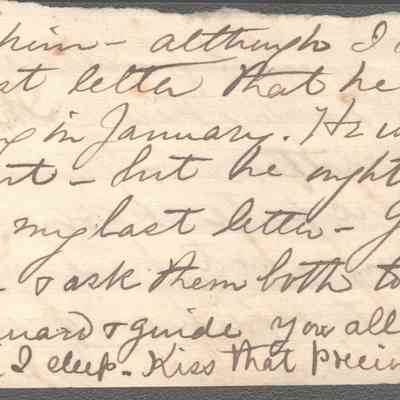 him - although I
st letter that he
in January. He
but he ought
my last letter -
& ask them both to
guard & guide you all
I sleep - Kiss that preci